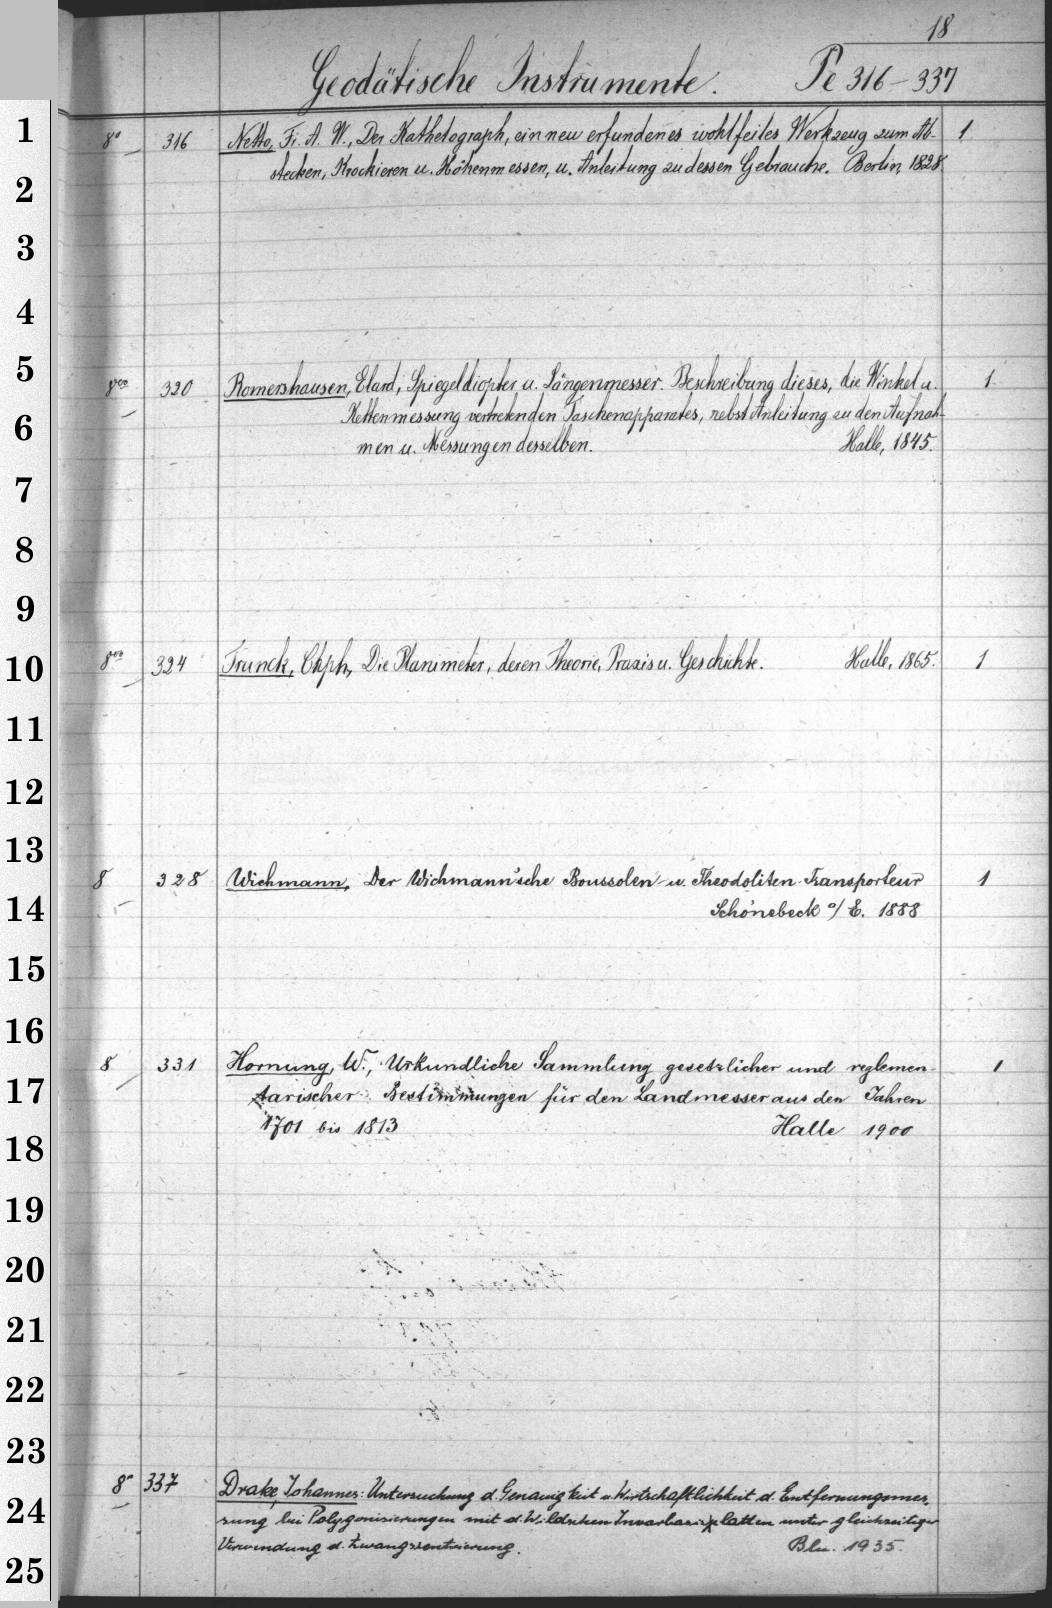 18
Geodätische Instrumente. Pe 316-337
1
8° 316 Netto, Fr. A. W., Der Kathetograph, ein neu erfundenes wohlfeiles Werkzeug zum Ab- 1
stecken, Krockieren u. Höhenmessen, u. Anleitung zu dessen Gebrauche. Berlin, 1828.
2
3
4
5
320 Romershausen, Elard, Spiegeldiopter u. Längenmesser. Beschreibung dieses, die Winkel u. 1
Kettenmessung vertretenden Taschenapparates, nebst Anleitung zu den Aufnah-
6
men u. Messungen desselben. Halle, 1845.
7
8
9
10
324 Trunck, Chph., Die Planimeter, deren Theorie, Praxis u. Geschichte. Halle, 1865. 1
11
12
13
8 328 Wichmann, Der Wichmann'sche Boussolen- u. Theodoliten-Transporteur 1
14
Schönebeck a/E. 1888
15
16
8 331 Hornung, W., Urkundliche Sammlung gesetzlicher und reglemen- 1
17
tarischer Bestimmungen für den Landmesser aus den Jahren
1701 bis 1813 Halle 1900
18
19
20
21
22
23
8° 337 Drake, Johannes: Untersuchung d. Genauigkeit u. Wirtschaftlichkeit d. Entfernungsmes-
24
sung bei Polygonisierungen mit d. Wildschen Invarbasislatten unter gleichzeitiger
Verwendung d. Zwangszentrierung. Bln. 1935.
25